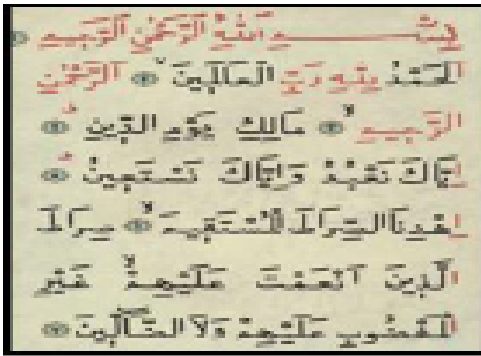 بِسْمِ اللّٰهِ الرَّحْمٰنِ الرَّحِيمِ
اَلْحَمْدُ لِلّٰهِ رَبِّ الْعَالَمِينَ ۙ الرَّحْمٰنِ
الرَّحِيمِ ۙ مَالِكِ يَوْمِ الدِّينِ ۜ
اِيَّاكَ نَعْبُدُ وَاِيَّاكَ نَسْتَعِينُ ۜ
اِهْدِنَا الصِّرَاطَ الْمُسْتَقِيمَ ۙ صِرَاطَ
الَّذِينَ اَنْعَمْتَ عَلَيْهِمْ ۙ غَيْرِ
الْمَغْضُوبِ عَلَيْهِمْ وَلَا الضَّالِّينَ